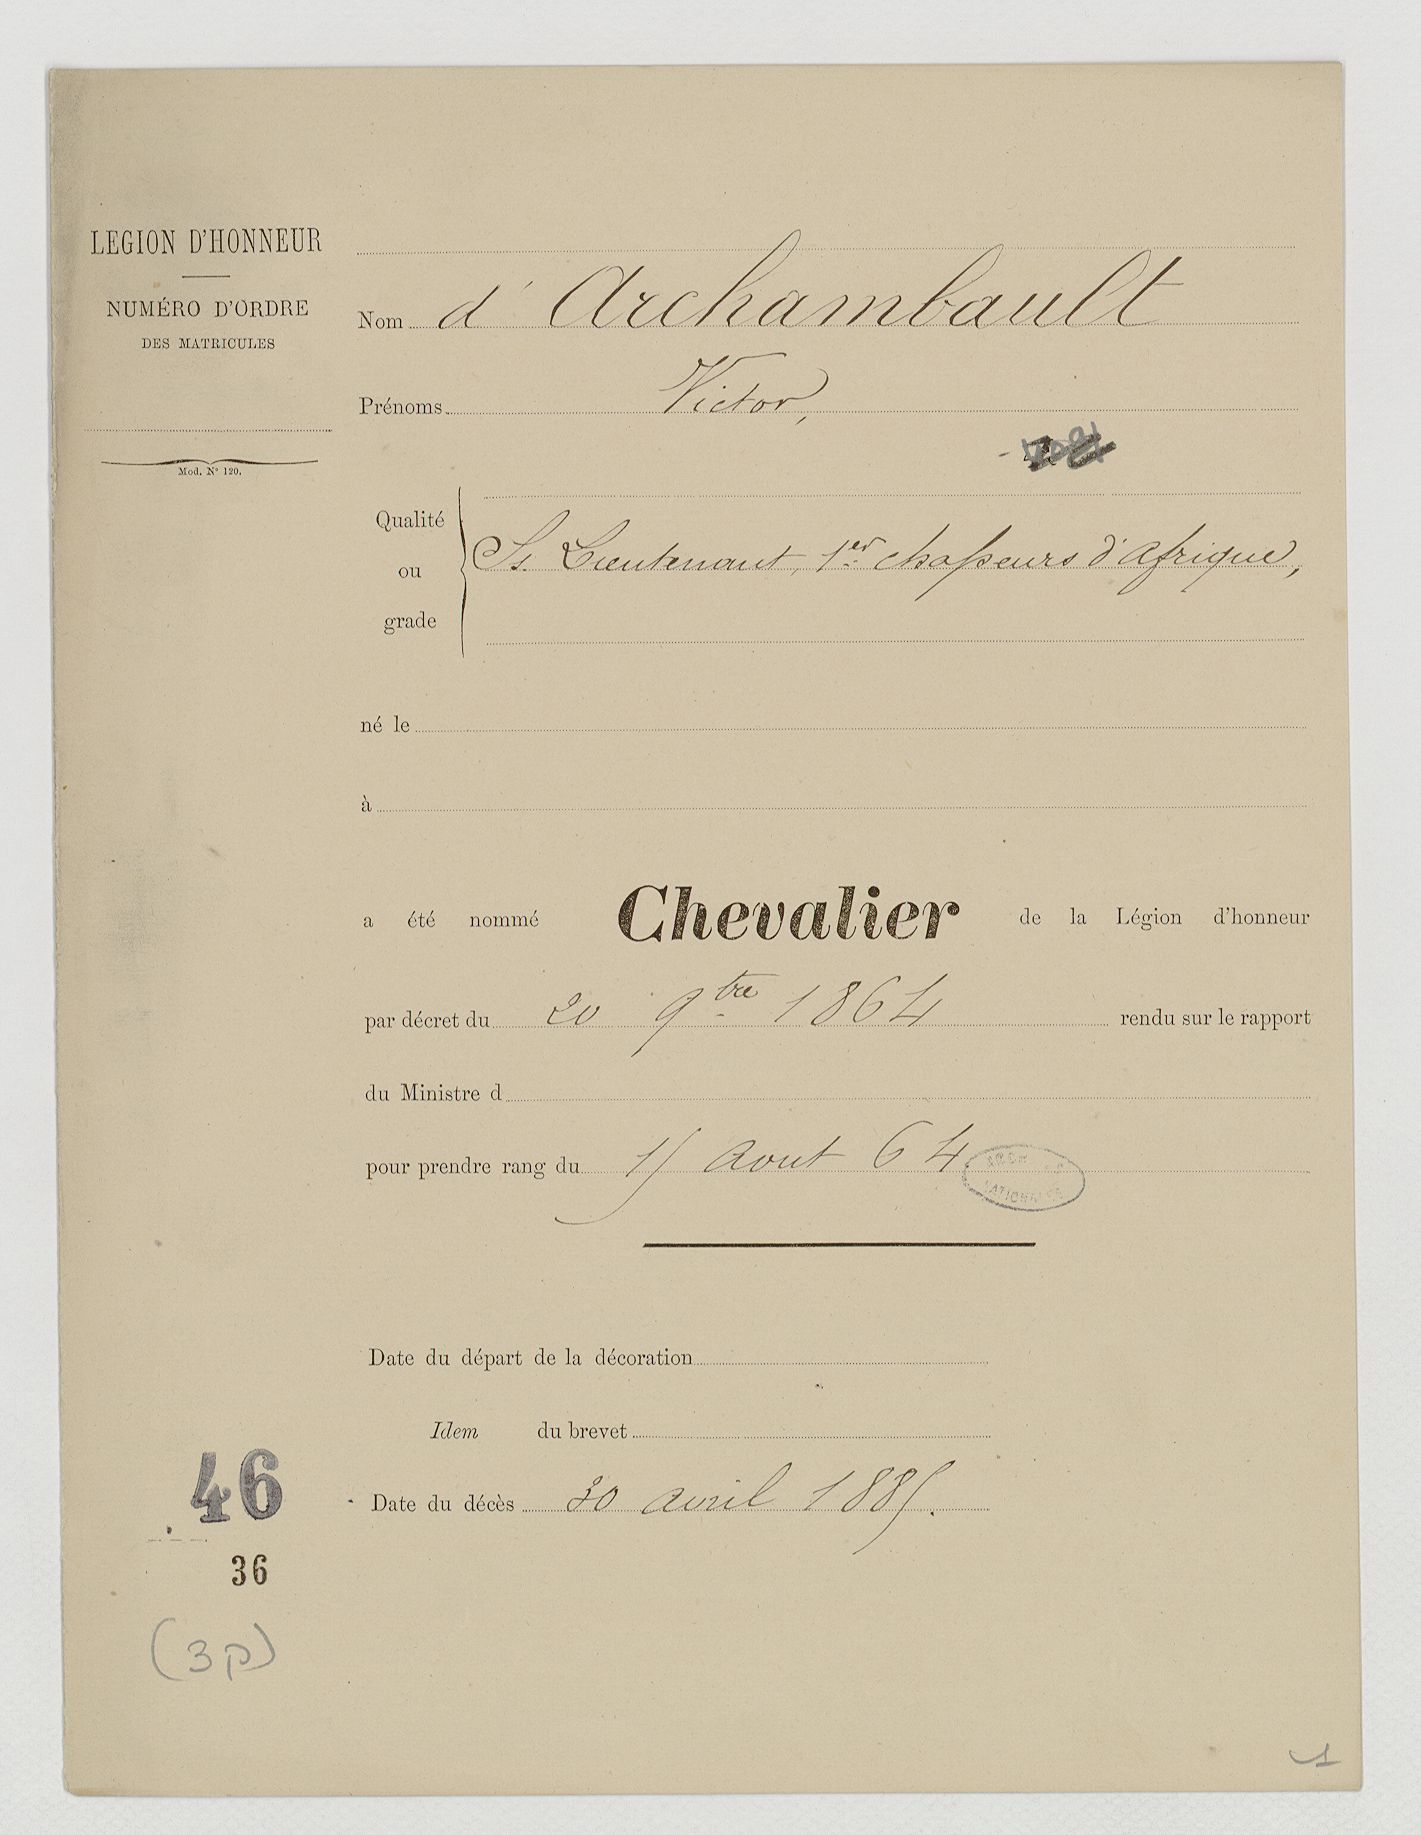 LEGION D'HONNEUR
NUMÉRO D'ORDRE
DES MATRICULES
Mod. N° 120.
Nom d'Archambault
Prénoms Victor,
Qualité
ou
grade
Ss. Lieutenant, 1er chasseurs d'afrique,
né le
à
a été nommé Chevalier de la Légion d'honneur
par décret du 20 9bre 1864 rendu sur le rapport
du Ministre d
pour prendre rang du 15 aout 64
NATIONALES
Date du départ de la décoration
Idem du brevet
Date du décès 30 avril 1885.
46
36
(3p)
1